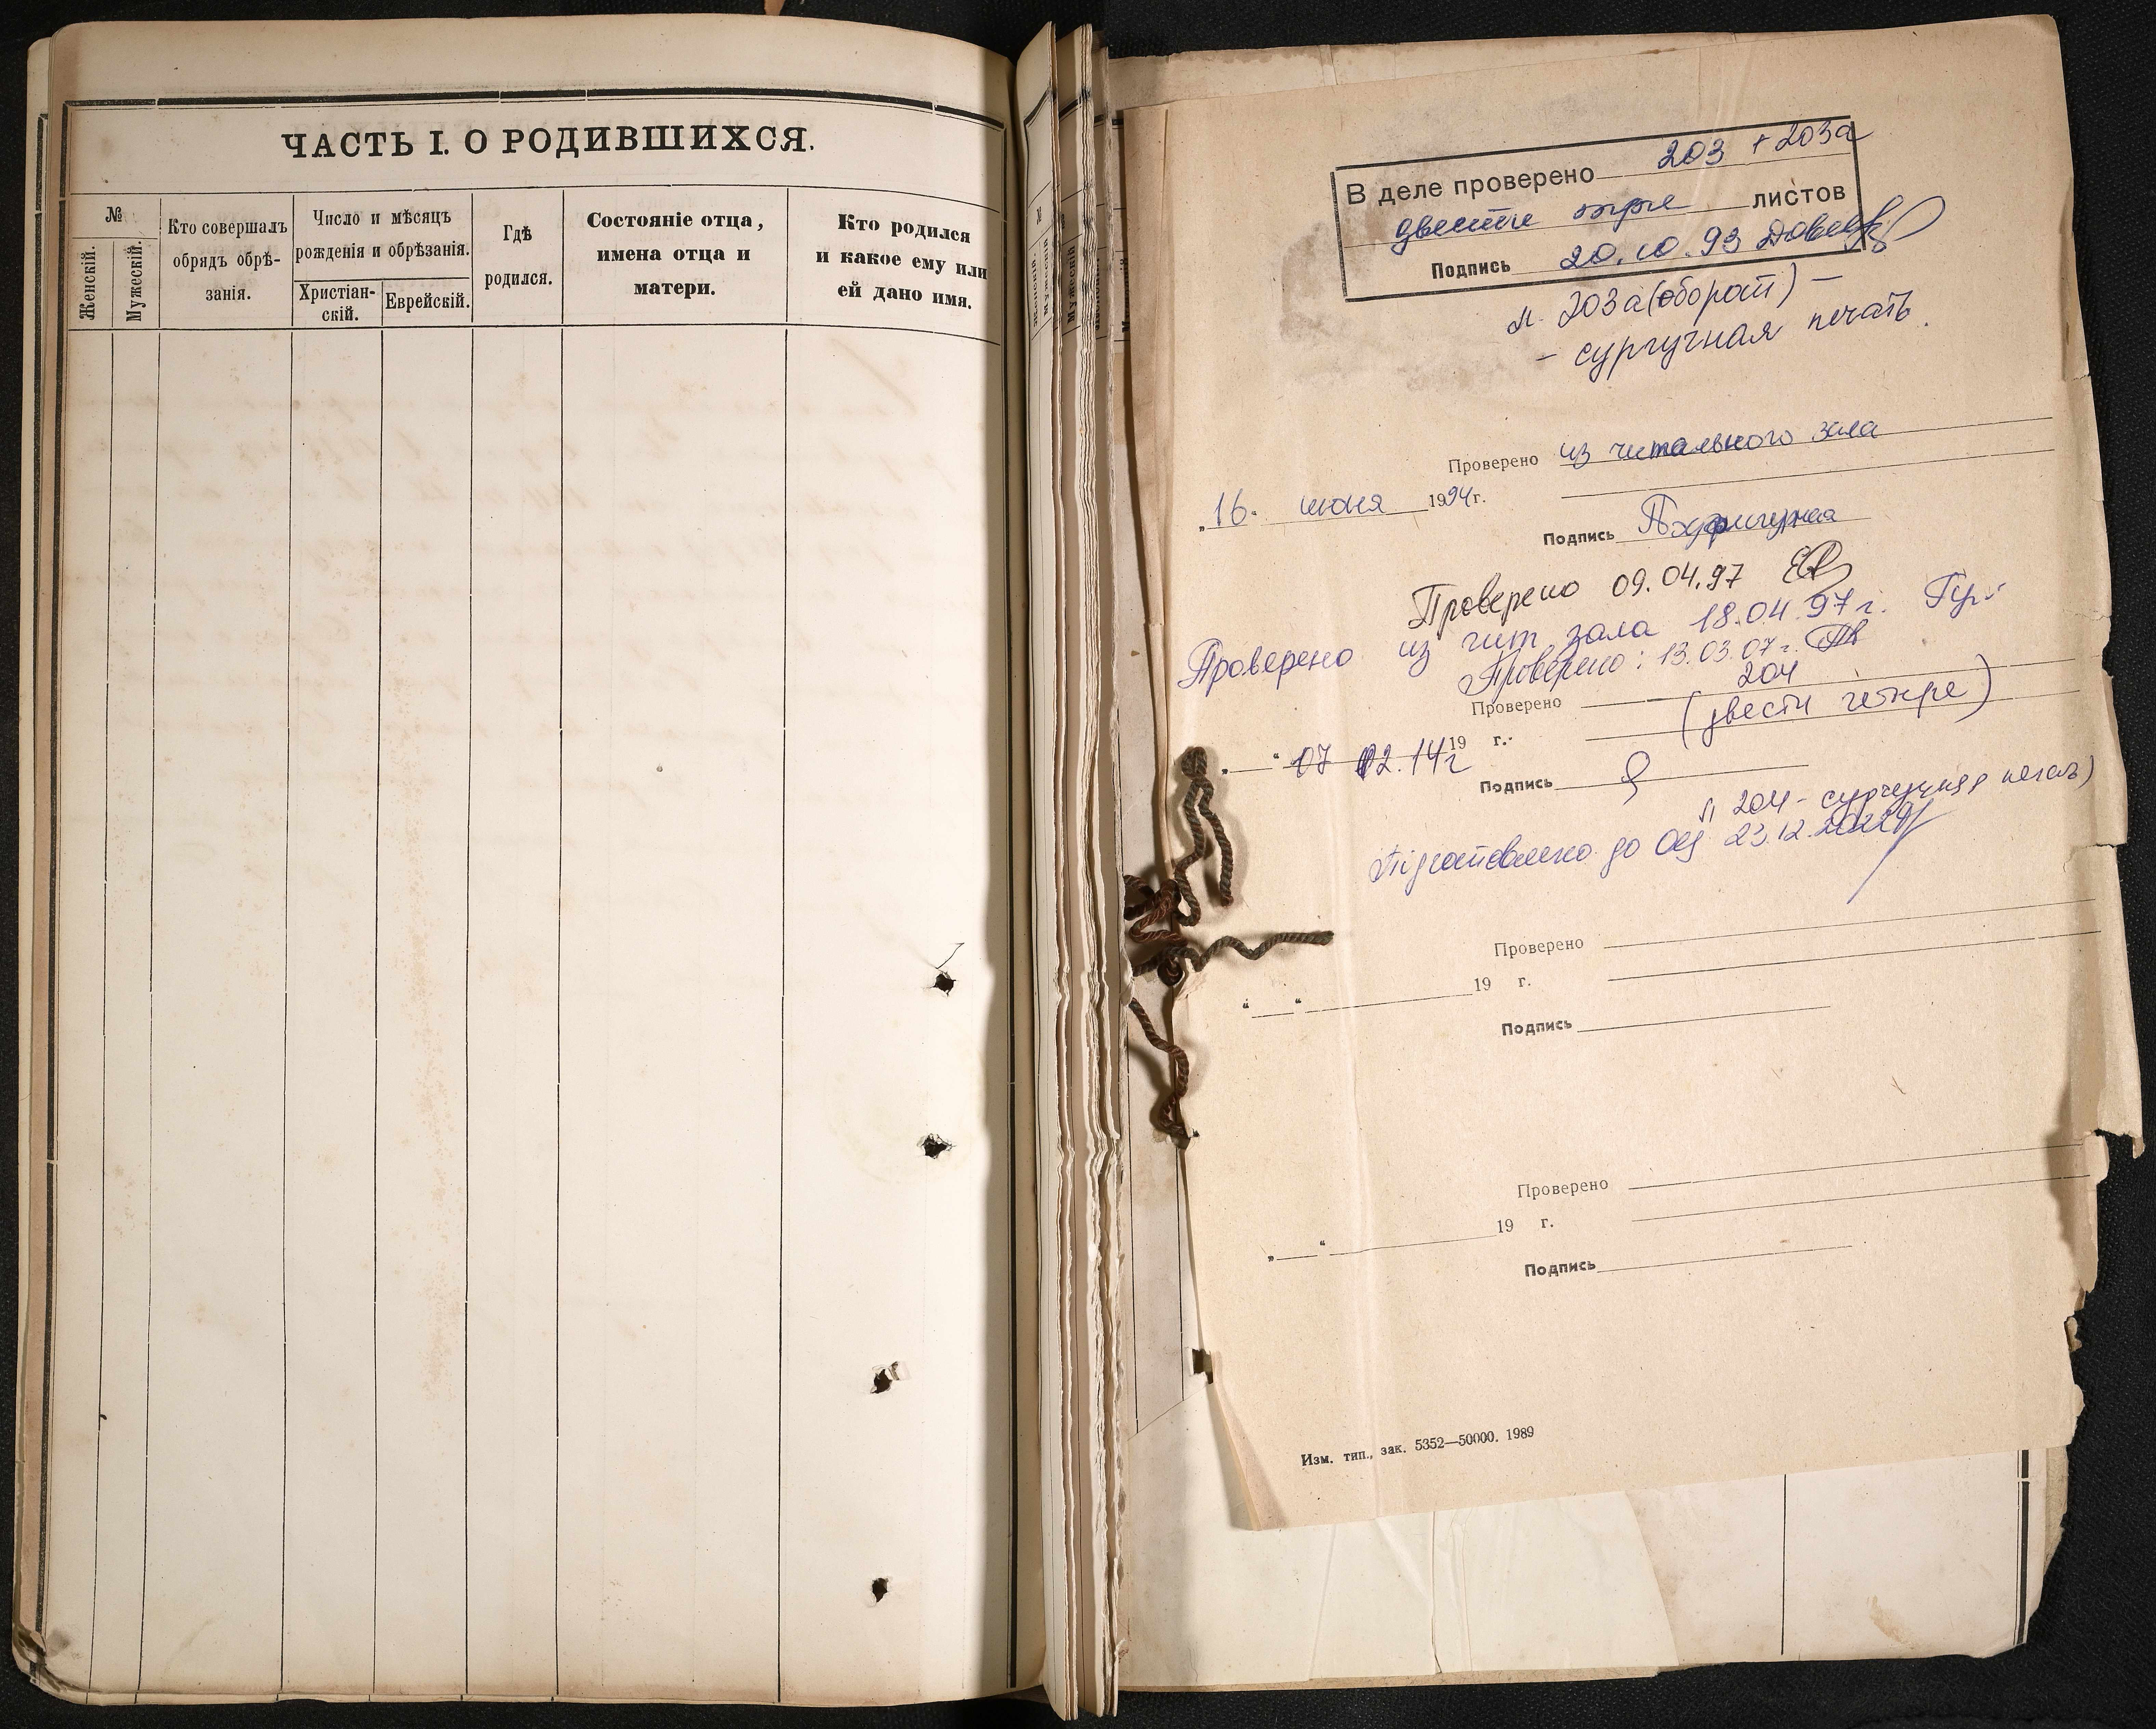 ЧАСТЬ I. О РОДИВШИХСЯ.
№
Женскій.
Мужескій.
Кто совершалъ
обрядъ обрѣ-
занія.
Число и мѣсяцъ
рожденія и обрѣзанія.
Христіан-
скій.
Еврейскій.
Гдѣ
родился.
Состояніе отца,
имена отца и
матери.
Кто родился
и какое ему или
ей дано имя.
В деле проверено 203 + 203а
двести три листов
Подпись 20.10.93
л. 203а (оборот) –
– сургучная печать.
Проверено из читального зала
„16“ июня 1994 г.
Подпись
Проверено 09.04.97
Проверено из чит. зала 18.04.97 г.
Проверено: 13.03.07 г.
Проверено 204
(двести четыре)
„ “ 07 02.14 г 19 г.
Подпись
л 204 – сургучная печать)
Підготовлено до Оц 23.12.2022
Проверено
„ “ 19 г.
Подпись
Проверено
„ “ 19 г.
Подпись
Изм. тип., зак. 5352—50000. 1989